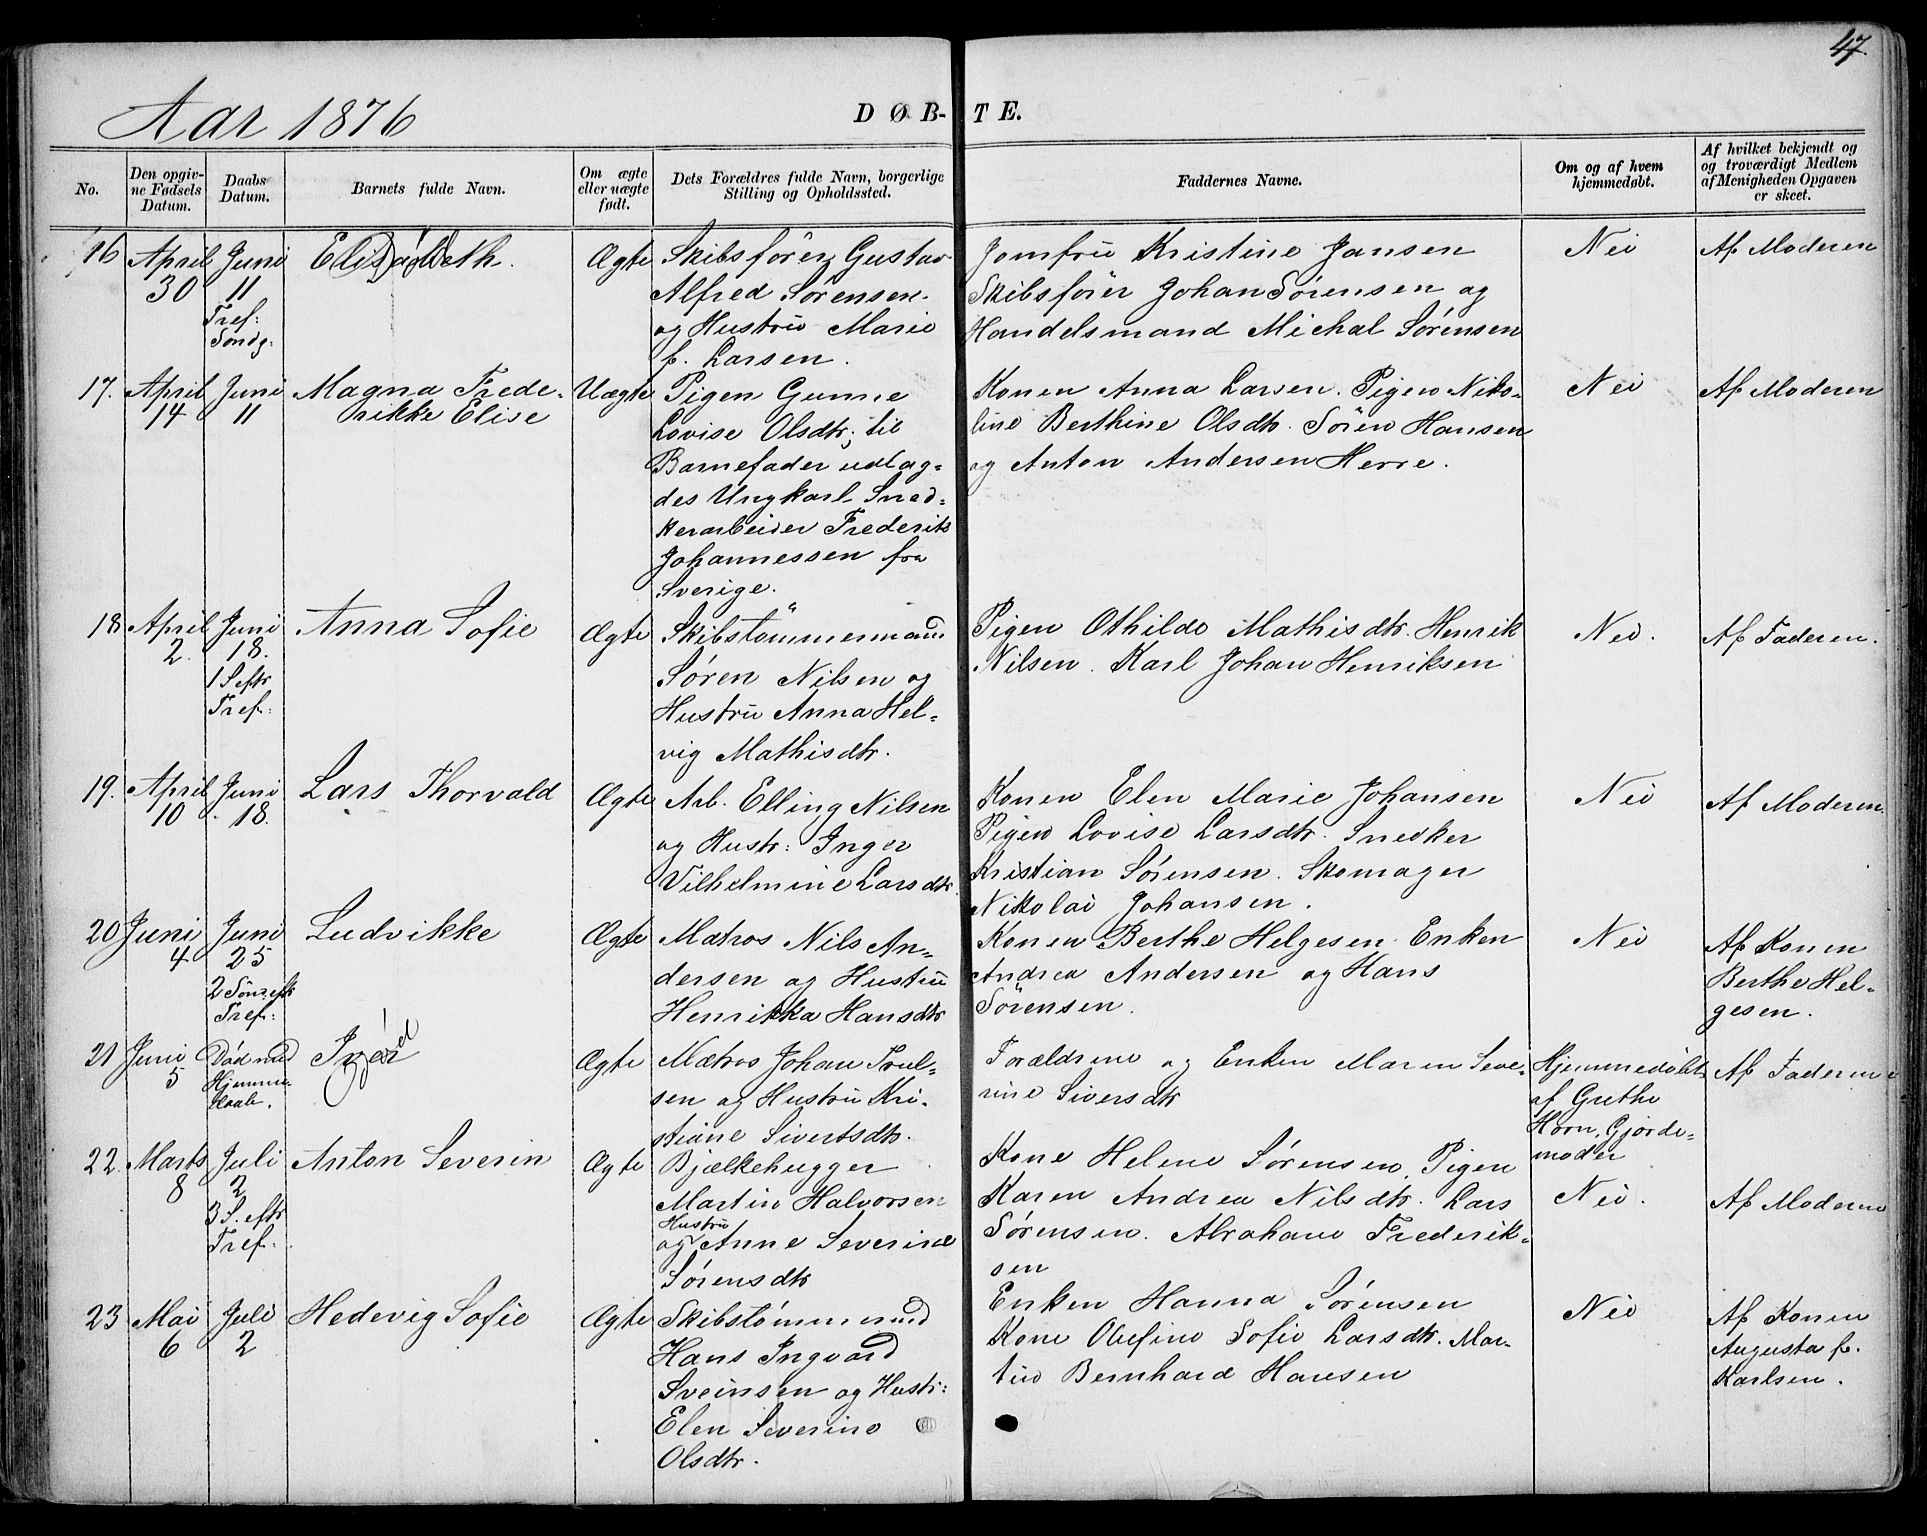 47.
Aar 1876
DØB-TE.
No.
Den opgiv-
ne Fødsels
Datum.
Daabs
Datum.
Barnets fulde Navn.
Om ægte
eller uægte
født.
Dets Forældres fulde Navn, borgerlige
Stilling og Opholdssted.
Faddernes Navne.
Om og af hvem
hjemmedøbt.
Af hvilket bekjendt og
og troværdigt Medlem
af Menigheden Opgaven
er skeet.
16
April
30
Juni
11
Tref:
Søndg:
Elisabeth.
Ægte
Skibsfører Gustav
Alfred Sørensen.
og Hustru Marie
f. Larsen.
Jomfru Kristine Jansen
Skibsfører Johan Sørensen og
Handelsmand Michal Sørensen
Nei
Af Moderen
17.
April
14
Juni
11
Magna Frede-
rikke Elise
Uægte
Pigen Gunne
Lovise Olsdtr; til
Barnefader udlag-
des Ungkarl Sned-
kerarbeider Frederik
Johannessen fra
Sverige.
Konen Anna Larsen. Pigen Niko-
line Berthine Olsdtr. Søren Hansen
og Anton Andersen Herre.
Nei
Af Moderen
18.
April
2.
Juni
18.
1 S eftr
Tref:
Anna Sofie
Ægte
Skibstømmermand
Søren Nilsen og
Hustru Anna Hel-
vig Mathisdtr.
Pigen Othilde Mathisdtr. Henrik
Nilsen. Karl Johan Henriksen
Nei.
Af Faderen.
19.
April
10
Juni
18.
Lars Thorvald
Ægte
Arb. Elling Nilsen
og Hustr: Inger
Vilhelmine Larsdtr.
Konen Elen Marie Johansen
Pigen Lovise Larsdtr. Snedker
Kristian Sørensen. Skomager
Nikolai Johansen.
Nei
Af Moderen.
20
Juni
4
Juni
25
2 Sönd. eftr
Tref:
Ludvikke
Ægte
Matros Nils An-
dersen og Hustru
Henrikka Hansdtr
Konen Berthe Helgesen. Enken
Andrea Andersen og Hans
Sørensen.
Nei
Af Konen
Berthe Hel-
gesen.
21
Juni
5
Død med
Hjemme-
daab.
Ægte
Matros Johan Trul-
sen og Hustru Kri-
stiane Sivertsdtr.
Forældrene og Enken Maren Seve-
rine Siversdtr
Hjemmedøbt
af Grethe
Horn, Gjorde-
moder
Af Faderen
22.
Marts
8
Juli
2
3 S. eftr
Tref:
Anton Severin
Ægte
Bjælkehugger
Martin Halvorsen
og Hustru Anne Severine
Sørensdtr
Kone Helene Sørensen. Pigen
Karen Andrea Nilsdtr. Lars
Sørensen. Abraham Frederik-
sen
Nei.
Af Moderen
23
Mai
6
Juli
2
Hedevig Sofie
Ægte
Skibstømmermd
Hans Ingvard
Sveinsen og Hustr:
Elen Severine
Olsdtr.
Enken Hanna Sørensen
Kone Olufine Sofie Larsdtr. Mar-
tin Bernhard Hansen
Nei
Af Konen
Augusta f.
Karlsen.